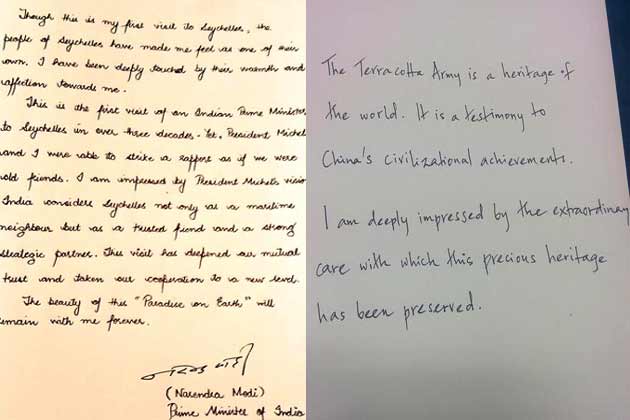 Though this is my first visit to Seychelles, the
people of Seychelles have made me feel as one of their
own. I have been deeply touched by their warmth and
affection towards me.
This is the first visit of an Indian Prime Minister
to Seychelles in over three decades. Yet, President Michel
and I were able to strike a rapport as if we were
old friends. I am impressed by President Michel's vision
India considers Seychelles not only as a maritime
neighbour but as a trusted friend and a strong
strategic partner. This visit has deepened our mutual
trust and taken our cooperation to a new level.
The beauty of this "Paradise on Earth" will
remain with me forever.
नरेन्द्र मोदी
(Narendra Modi)
Prime Minister of India
The Terracotta Army is a heritage of
the world. It is a testimony to
China's civilizational achievements.
I am deeply impressed by the extraordinary
care with which this precious heritage
has been preserved.